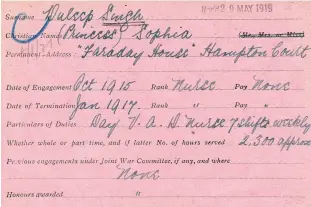 Surname Duleep Singh 9 MAY 1919
Christian Names Princess Sophia (Mr., Mrs. or Miss)
Permanent Address "Faraday House" Hampton Court
Date of Engagement Oct 1915 Rank Nurse Pay None
Date of Termination Jan 1917. Rank " Pay "
Particulars of Duties Day V. A. D. Nurse 7 shifts weekly
Whether whole or part time, and if latter No. of hours served 2,300 approx
Previous engagements under Joint War Committee, if any, and where
None
Honours awarded "